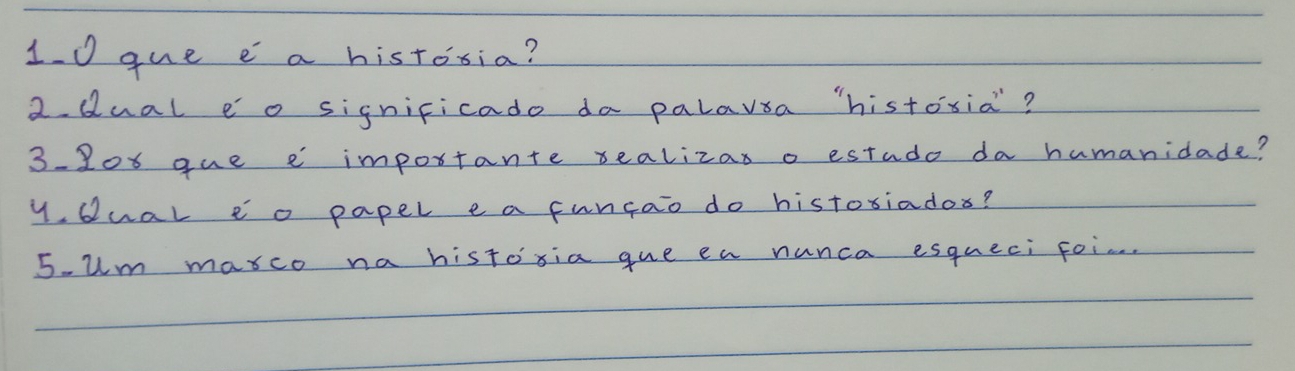 1-O que é a história?
2-Qual é o significado da palavra "história"?
3-Por que é importante realizar o estudo da humanidade?
4.Qual é o papel e a função do historiador?
5-Um marco na história que eu nunca esqueci foi...